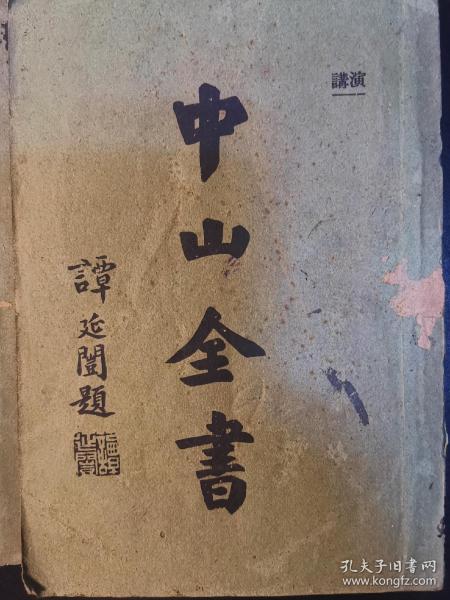 演講
中山全書
譚延闓題
孔夫子旧书网
www.kongfz.com